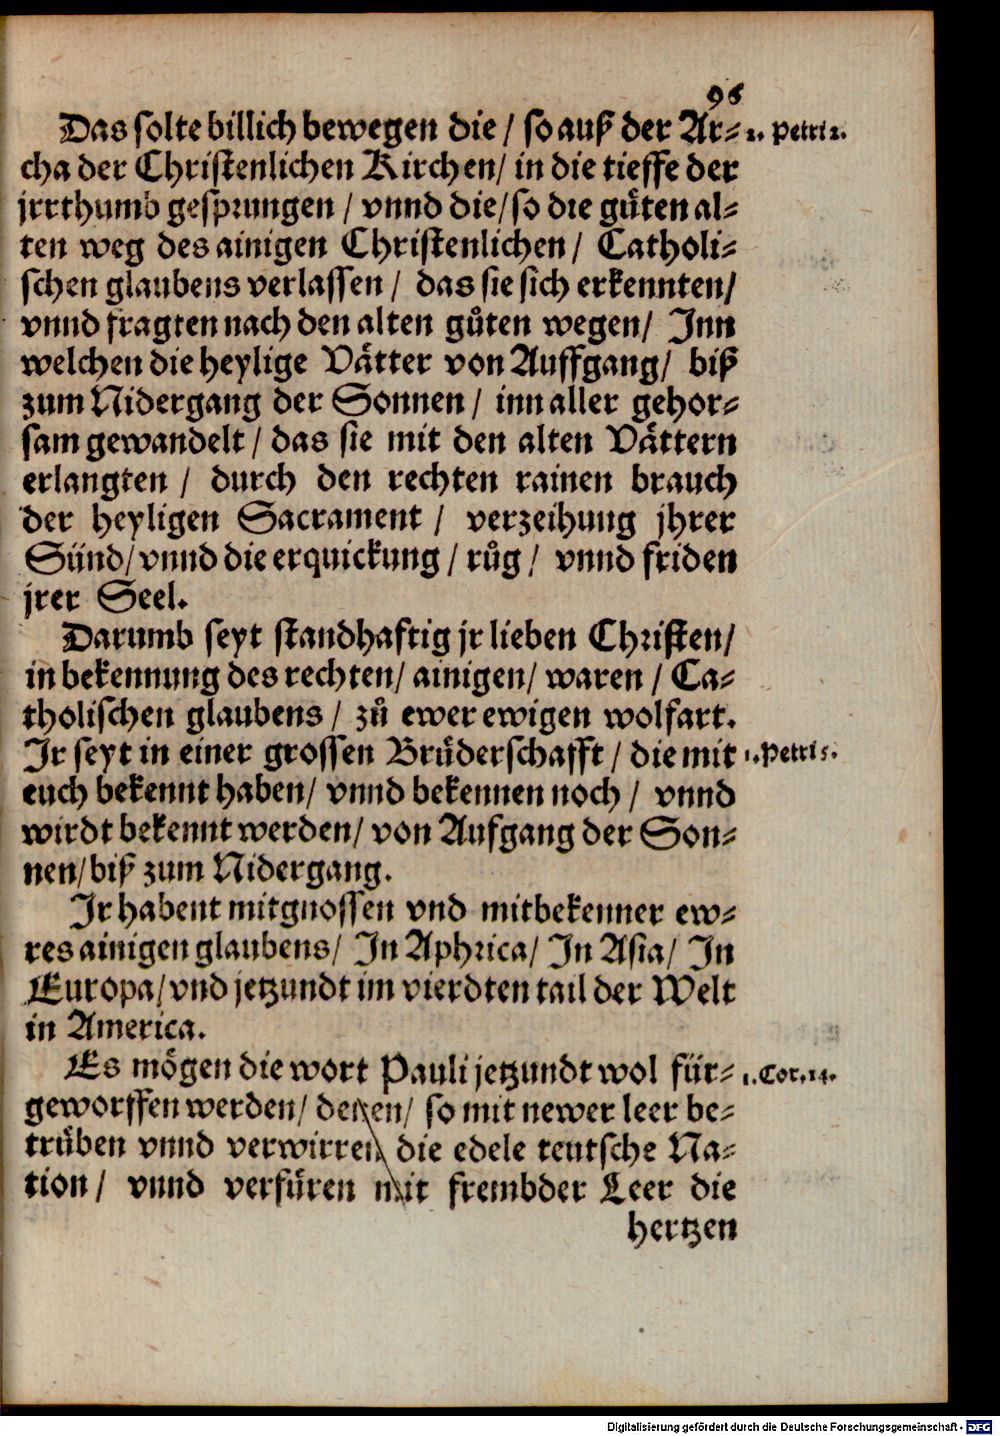 96
Das solte billich bewegen die / so auß der Ar⸗ 2. Petri 2.
cha der Christenlichen Kirchen / in die tieffe der
jrrthumb gesprungen / vnnd die / so die gůten al⸗
ten weg des ainigen Christenlichen / Catholi⸗
schen glaubens verlassen / das sie sich erkennten /
vnnd fragten nach den alten gůten wegen / Inn
welchen die heylige Vätter von Auffgang / biß
zum Nidergang der Sonnen / inn aller gehor⸗
sam gewandelt / das sie mit den alten Vättern
erlangten / durch den rechten rainen brauch
der heyligen Sacrament / verzeihung jhrer
Sünd / vnnd die erquickung / růg / vnnd friden
jrer Seel.
Darumb seyt standhafftig jr lieben Christen /
in bekennung des rechten / ainigen / waren / Ca⸗
tholischen glaubens / zů ewer ewigen wolfart.
Ir seyt in einer grossen Brůderschafft / die mit 1. Petri 5.
euch bekennt haben / vnnd bekennen noch / vnnd
wirdt bekennt werden / von Aufgang der Son⸗
nen / biß zum Nidergang.
Ir habent mitgnossen vnd mitbekenner ew⸗
res ainigen glaubens / In Aphrica / In Asia / In
Europa / vnd jetzundt im vierdten tail der Welt
in America.
Es mögen die wort Pauli jetzundt wol für⸗ 1. Cor. 14.
geworffen werden / denen / so mit newer leer be⸗
trüben vnnd verwirren die edele teutsche Na⸗
tion / vnnd verfüren mit frembder Leer die
hertzen
Digitalisierung gefördert durch die Deutsche Forschungsgemeinschaft - DFG